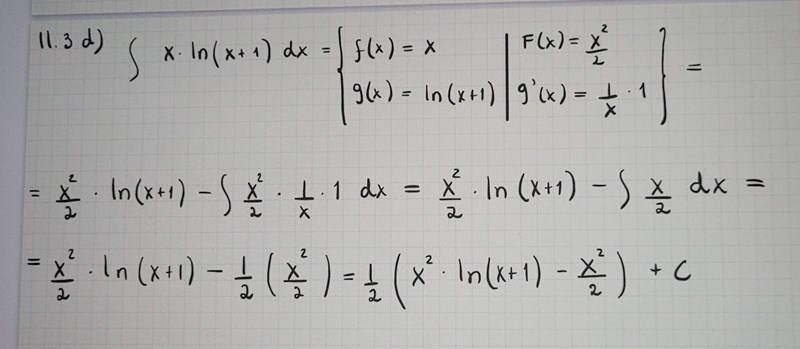 11.3 d) ∫ x · ln(x+1) dx = { f(x) = x | F(x) = x²/2
g(x) = ln(x+1) | g'(x) = 1/x · 1 } =
= x²/2 · ln(x+1) - ∫ x²/2 · 1/x · 1 dx = x²/2 · ln(x+1) - ∫ x/2 dx =
= x²/2 · ln(x+1) - 1/2 (x²/2) = 1/2 (x² · ln(x+1) - x²/2) + C